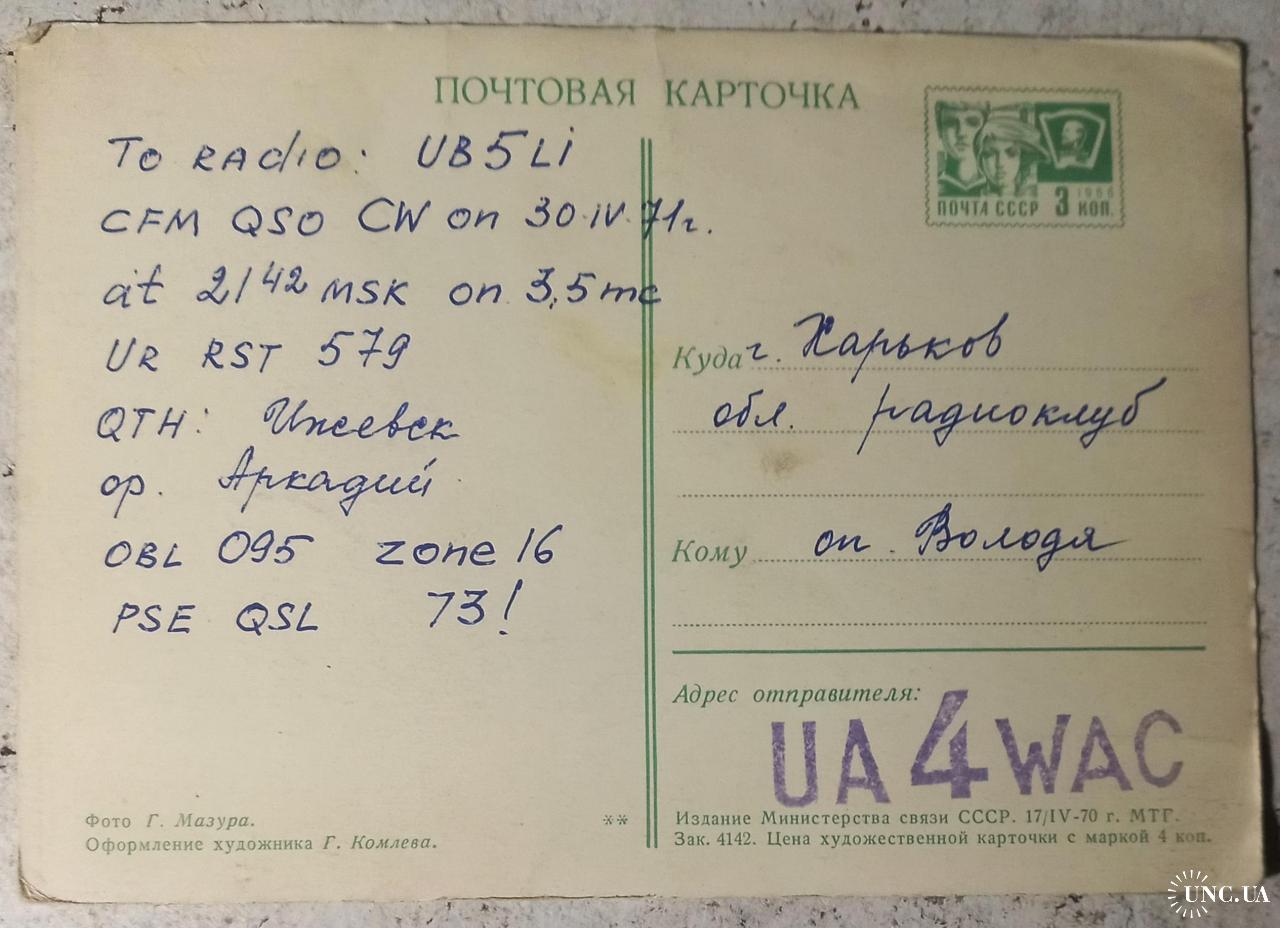 ПОЧТОВАЯ КАРТОЧКА
To RAdio: UB5Li
CFM QSO CW on 30.IV.71г.
at 21⁴² MSK on 3,5 mc
UR RST 579
QTH: Ижевск
op. Аркадий
OBL 095 zone 16
PSE QSL 73!
Фото Г. Мазура.
Оформление художника Г. Комлева.
**
1966
ПОЧТА СССР 3 КОП.
Куда г. Харьков
обл. радиоклуб
Кому оп. Володя
Адрес отправителя:
UA4WAC
Издание Министерства связи СССР. 17/IV-70 г. МТГ.
Зак. 4142. Цена художественной карточки с маркой 4 коп.
UNC.UA